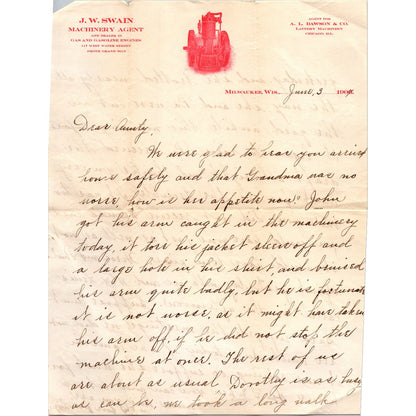 J. W. SWAIN
MACHINERY AGENT
AND DEALER IN
GAS AND GASOLINE ENGINES
WEST WATER STREET
PHONE GRAND
AGENT FOR
A. L. DAWSON & CO.
LAUNDRY MACHINERY
CHICAGO, ILL.
MILWAUKEE, WIS., June, 3 190
Dear Aunty,
We were glad to hear you arrived
home safely and that Grandma was no
worse, how is her appetite now? John
got his arm caught in the machinery
today, it tore his jacket sleeve off and
a large hole in his shirt, and bruised
his arm quite badly, but he is fortunate
it is not worse, as it might have taken
his arm off, if he did not stop the
machine at once. The rest of us
are about as usual, Dorothy is as busy
as can be, we took a long walk